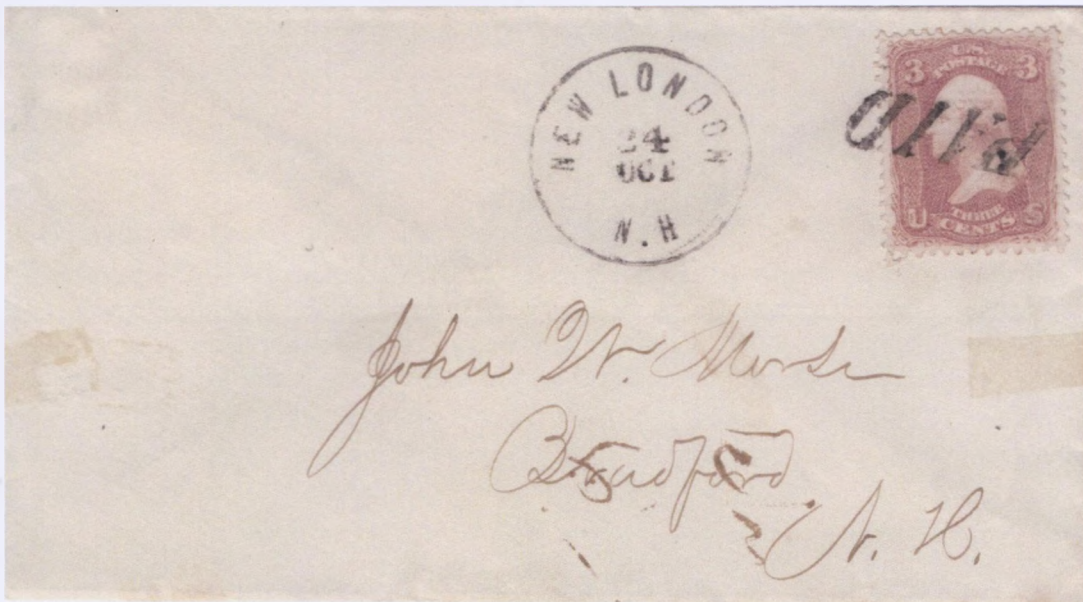 NEW LONDON
24
OCT
N.H
U.S.
POSTAGE
3 3
PAID
U S
CENTS
John W. Morse
Bradford
N. H.